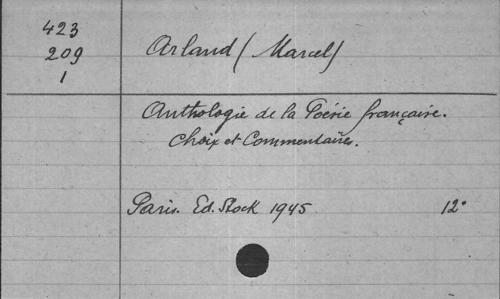 423
209
1
Arland (Marcel)
Anthologie de la Poésie française.
Choix et Commentaires.
Paris. Ed. Stock 1945. 12°